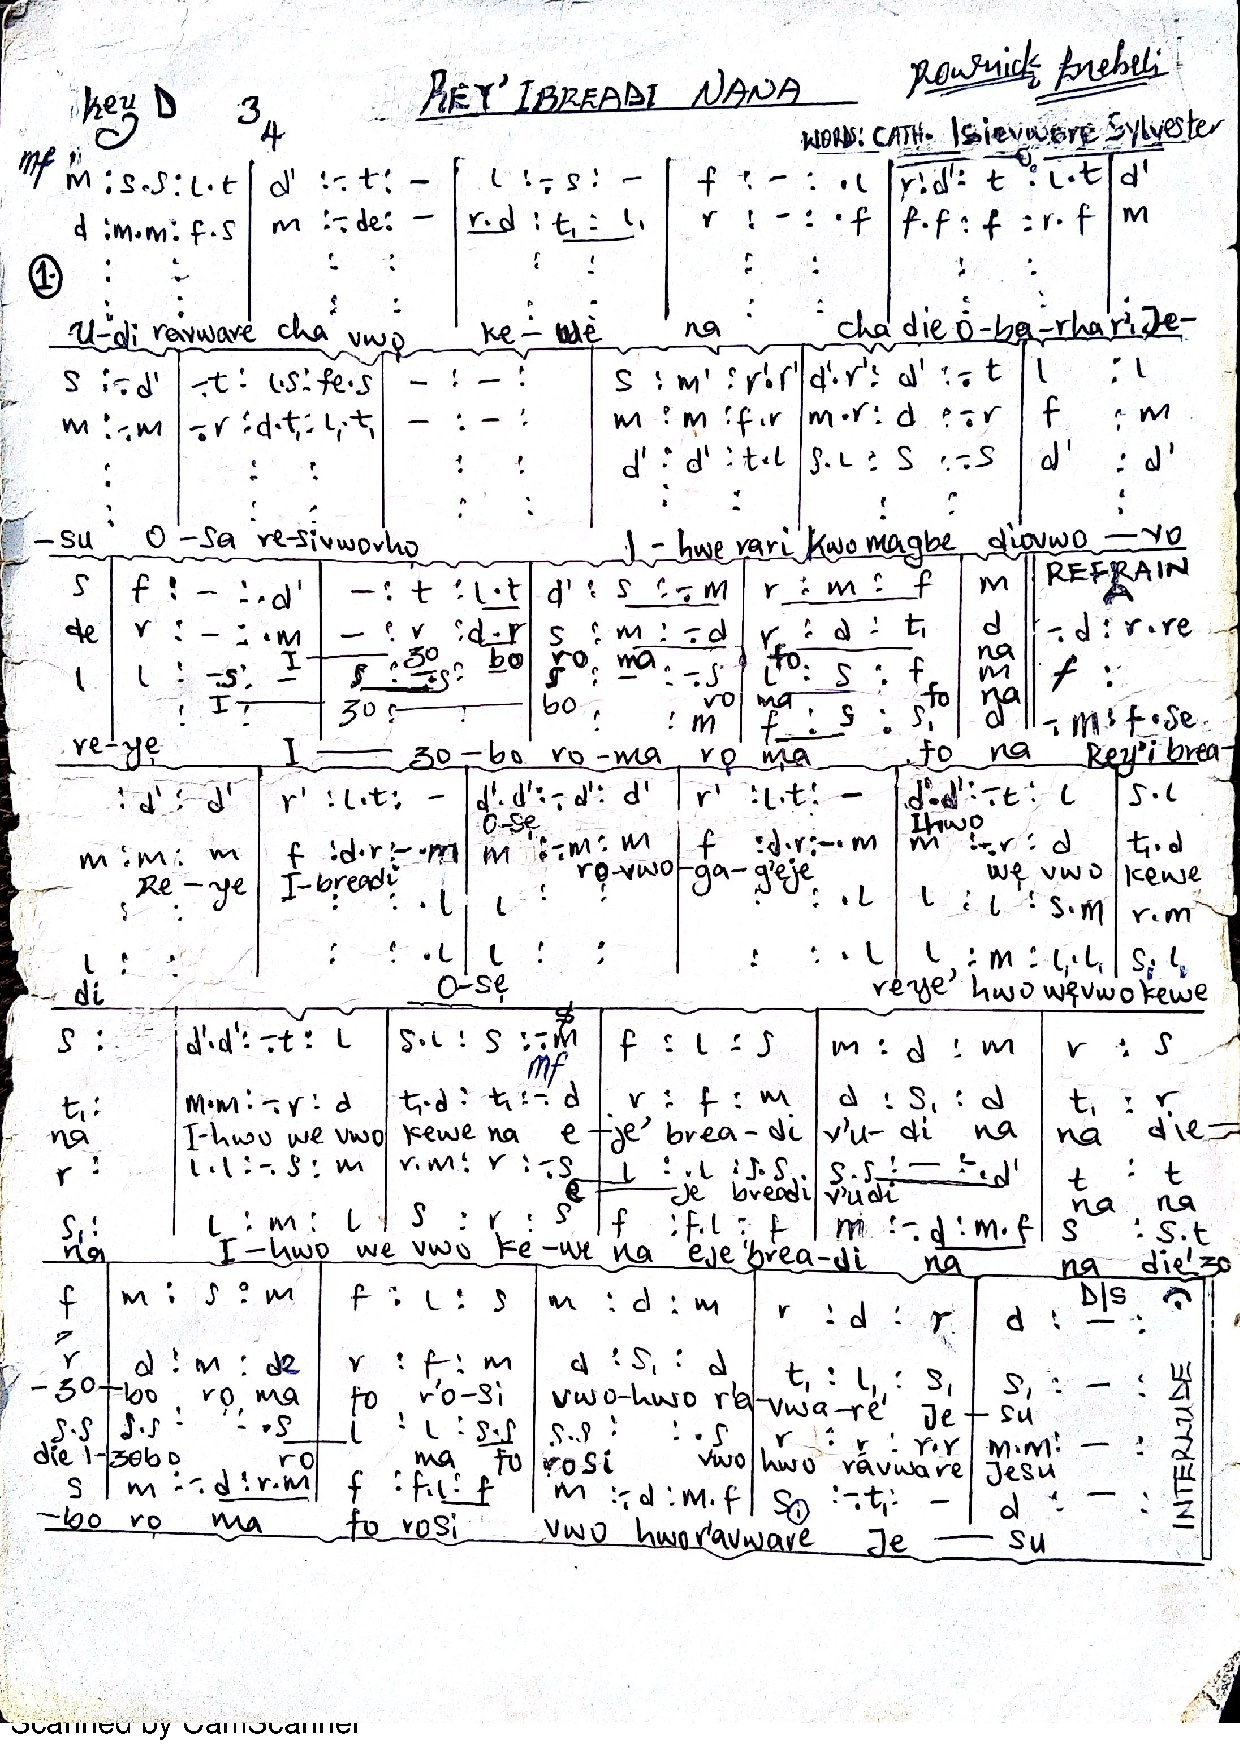 Key D 3/4 REY' IBREADI NANA
WORDS: CATH. Isievwore Sylvester
mf m : s.s : l.t | d' :-.t : - | l :-.s : - | f : - : .l | r'.d' : t : l.t | d'
d : m.m : f.s | m :-.de : - | r.d : t₁ : l₁ | r : - : .f | f.f : f : r.f | m
1.
U-di ravware cha vwo ke-we na cha die O-ba-rha ri Je-
s :-.d' | -.t : l.s : fe.s | - : - : | s : m' : r'.r' | d'.r' : d' :-.t | l : l
m :-.m | -.r : d.t₁ : l₁.t₁ | - : - : | m : m : f.r | m.r : d :-.r | f : m
d' : d' : t.l | s.l : s :-.s | d' : d'
-su O-sa re-sivworho I-hwe rari kwo magbe diovwo-ro
s | f : - : .d' | - : t : l.t | d' : s :-.m | r : m : f | m || REFRAIN
de | r : - : .m | - : r : d.r | s : m :-.d | r : d : t₁ | d || -.d : r.re
I 30 bo ro ma fo na
l | l : -.s : - | s : -.s : | s : - :-.s | l : s : f | m || f :
I 30 bo ro ma fo na
: m | f : s : s₁ | d || -.m : f.se
re-ye I 30-bo ro-ma ro ma fo na Rey'i brea-
: d' : d' | r' : l.t : - | d'.d' :-.d' : d' | r' : l.t : - | d'.d' :-.t : l | s.l
O-se Ihwo
m : m : m | f : d.r :-.m | m :-.m : m | f : d.r :-.m | m :-.r : d | t₁.d
Re-ye I-breadi ro-vwo-ga-g'eje we vwo kewe
: : | : : .l | l : : | : : .l | l : l : s.m | r.m
l : : | : : .l | l : : | : : .l | l : m : l₁.l₁ | s₁.l₁
di O-se reye' hwo wevwo kewe
s : | d'.d' :-.t : l | s.l : s :-.m | f : l : s | m : d : m | r : s
mf
t₁ : | m.m :-.r : d | t₁.d : t₁ :-.d | r : f : m | d : s₁ : d | t₁ : r
na I-hwo we vwo kewe na e-je' brea-di v'u-di na na die-
r : | l.l :-.s : m | r.m : r :-.s | l : .l : s.s | s.s : - : .d' | t : t
e je breadi v'udi na na
s₁ : | l : m : l | s : r : s | f : f.l : f | m :-.d : m.f | s : s.t
na I-hwo we vwo ke-we na eje'brea-di na na die'30
D/S
f | m : s : m | f : l : s | m : d : m | r : d : r | d : - :
r | d : m : de | r : f : m | d : s₁ : d | t₁ : l₁ : s₁ | s₁ : - :
-30-bo ro, ma fo r'o-si vwo-hwo r'a-vwa-re' Je-su
s.s | s.s : : .s | l : l : s.s | s.s : : .s | r : r : r.r | m.m : - :
die 1-30bo ro ma fo rosi vwo hwo ravware Jesu
s | m :-.d : r.m | f : f.l : f | m :-.d : m.f | s₁ :-.t₁ : - | d : - :
-bo ro ma fo rosi vwo hwor'avware Je-su
INTERLUDE
Scanned by CamScanner